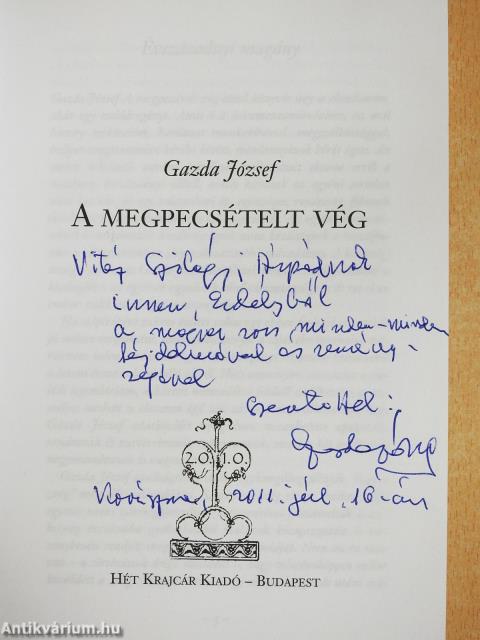 Gazda József
A MEGPECSÉTELT VÉG
Vitéz Szilágyi Árpádnak
innen Erdélyből
a magyar sors minden-minden
fájdalmával és remény-
ségével
Szeretettel:
Gazda József
2.0. 1.0.
Kovászna, 2011. júl. 16-án
HÉT KRAJCÁR KIADÓ – BUDAPEST
Antikvárium.hu